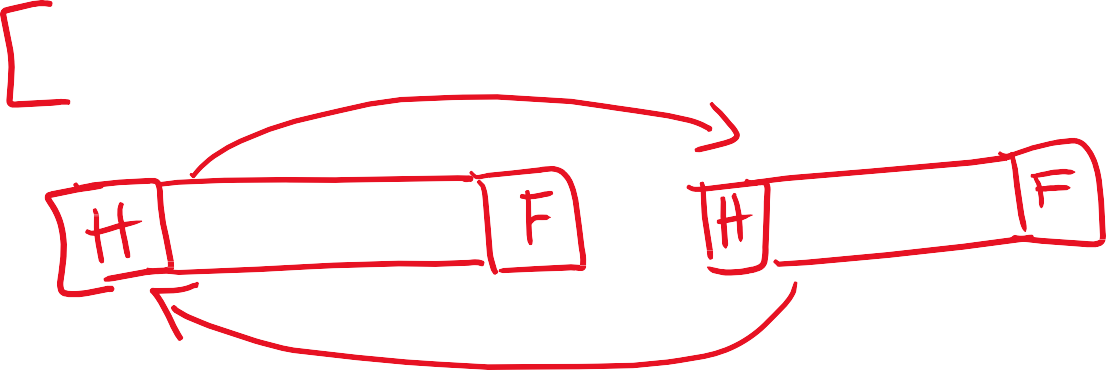 H F H F